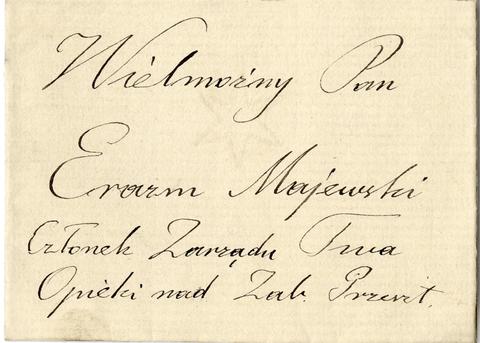 Wielmożny Pan
Erazm Majewski
Członek Zarządu Twa
Opieki nad Zab. Przesz.